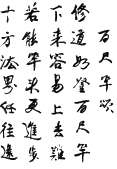 百尺竿頌
修道如登百尺竿
下來容易上去難
若能竿头更進步
十方法界任往還